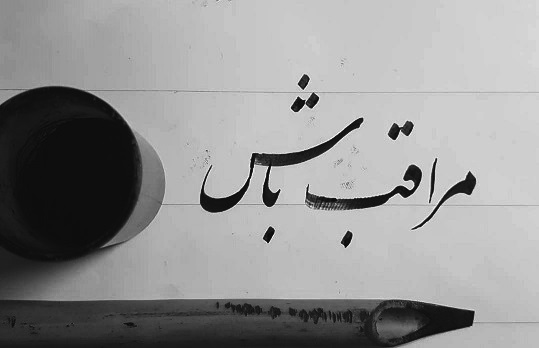 مراقب باش